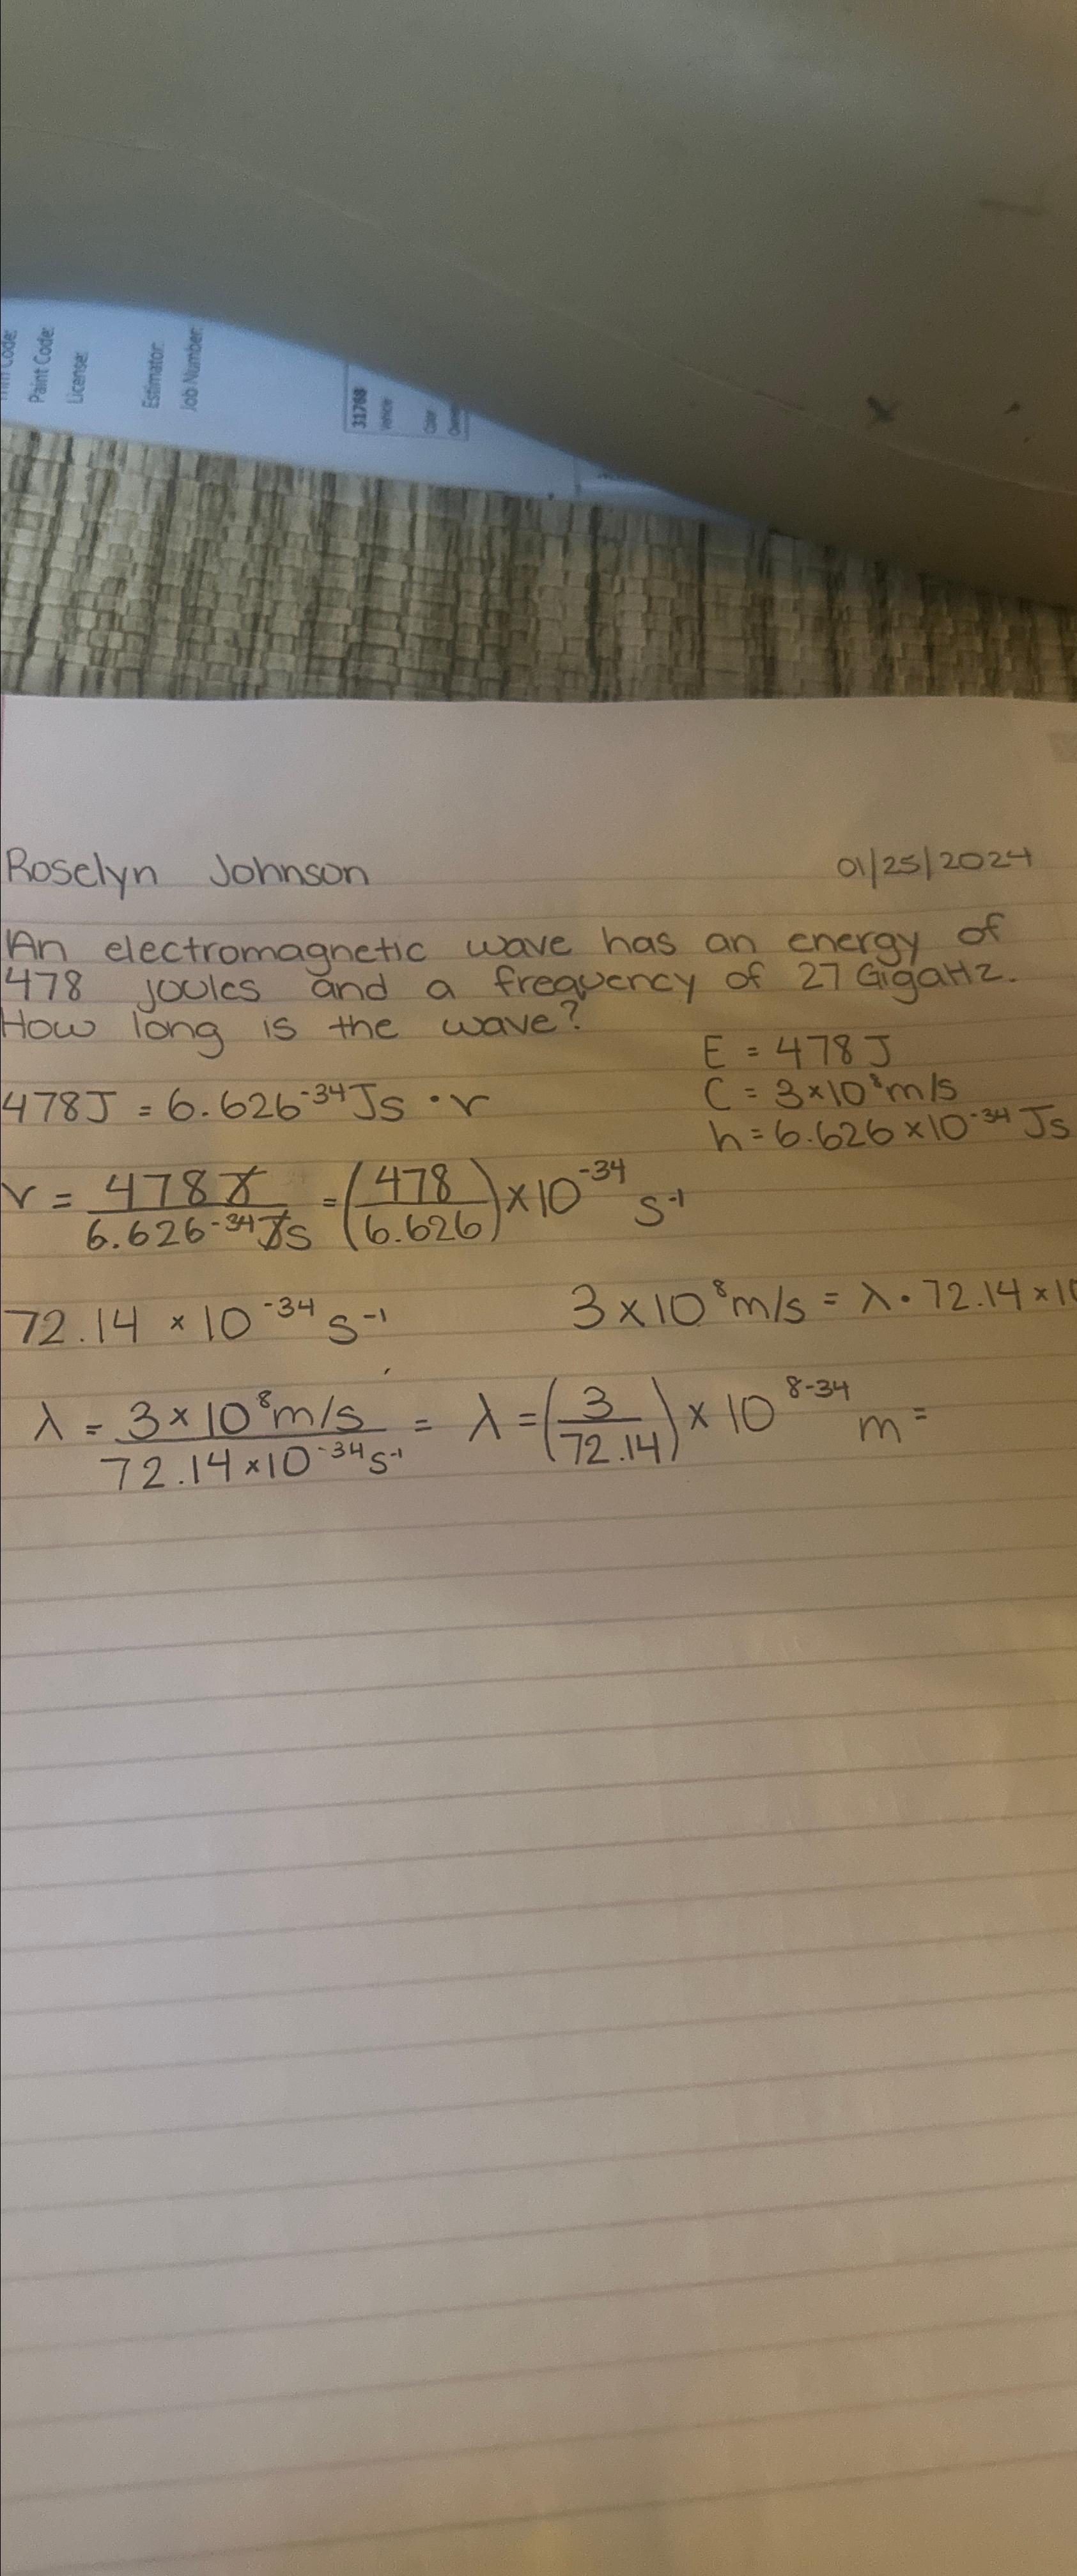 Paint Code:
License:
Estimator:
Job Number:
31768
Vehicle
Color
Roselyn Johnson 01/25/2024
An electromagnetic wave has an energy of
478 joules and a frequency of 27 GigaHz.
How long is the wave?
E = 478 J
478J = 6.626⁻³⁴Js · v
C = 3×10⁸m/s
h = 6.626×10⁻³⁴ Js
v = 478J / 6.626⁻³⁴Js = (478 / 6.626) × 10⁻³⁴ s⁻¹
72.14 × 10⁻³⁴ s⁻¹ 3 × 10⁸m/s = λ · 72.14 × 10
λ = 3 × 10⁸m/s / 72.14 × 10⁻³⁴s⁻¹ = λ = (3 / 72.14) × 10⁸⁻³⁴ m =